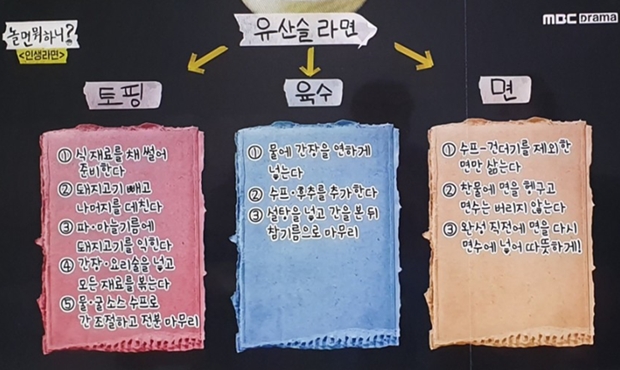 놀면뭐하니?
<인생라면>
유산슬 라면
MBC Drama
토핑
① 식재료를 채 썰어
준비한다
② 돼지고기 빼고
나머지를 데친다
③ 파·마늘기름에
돼지고기를 익힌다
④ 간장·요리술을 넣고
모든 재료를 볶는다
⑤ 물·굴소스 수프로
간 조절하고 전분 마무리
육수
① 물에 간장을 연하게
넣는다
② 수프·후추를 추가한다
③ 설탕을 넣고 간을 본 뒤
참기름으로 마무리
면
① 수프-건더기를 제외한
면만 삶는다
② 찬물에 면을 헹구고
면수는 버리지 않는다
③ 완성 직전에 면을 다시
면수에 넣어 따뜻하게!